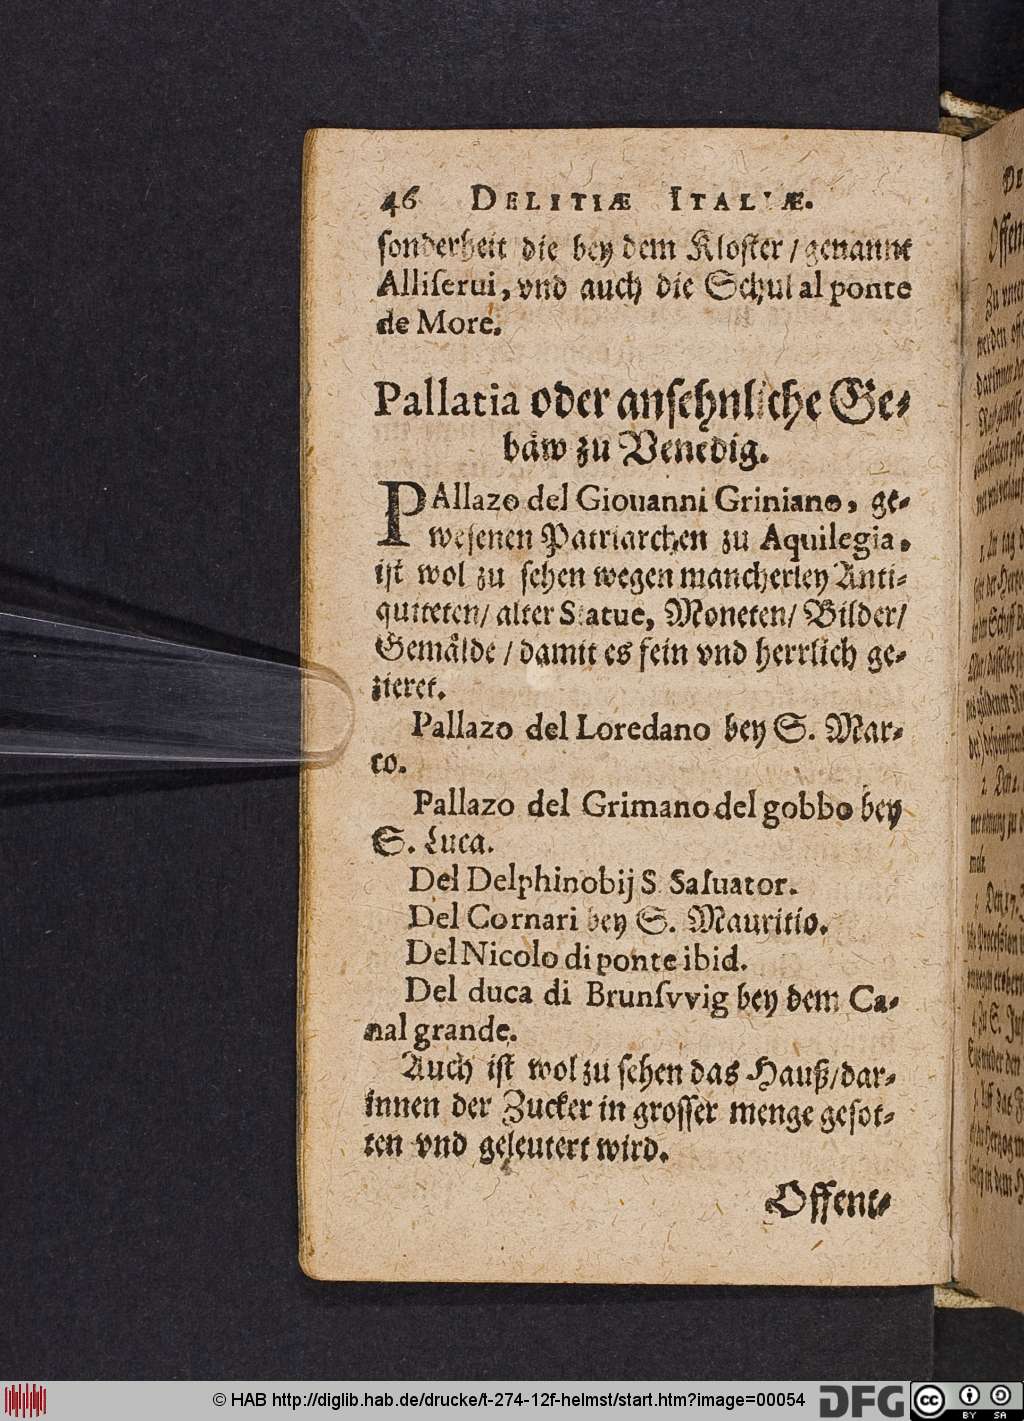 46 DELITIÆ ITALIÆ.
ſonderheit die bey dem Kloſter / genannt
Alliſerui, vnd auch die Schul al ponte
de More.
Pallatia oder anſehnliche Ge-
baw zu Venedig.
PAllazo del Giouanni Griniano, ge-
weſenen Patriarchen zu Aquilegia,
iſt wol zu ſehen wegen mancherley Anti-
quiteten/ alter Statue, Moneten/ Bilder/
Gemälde / damit es fein vnd herrlich ge-
zieret.
Pallazo del Loredano bey S. Mar-
co.
Pallazo del Grimano del gobbo bey
S. Luca.
Del Delphinobij S. Saluator.
Del Cornari bey S. Mauritio.
Del Nicolo di ponte ibid.
Del duca di Brunſvvig bey dem Ca-
nal grande.
Auch iſt wol zu ſehen das Hauß/dar-
innen der Zucker in groſſer menge geſot-
ten vnd geleutert wird.
Offent-
© HAB http://diglib.hab.de/drucke/t-274-12f-helmst/start.htm?image=00054
DFG
cc
BY SA